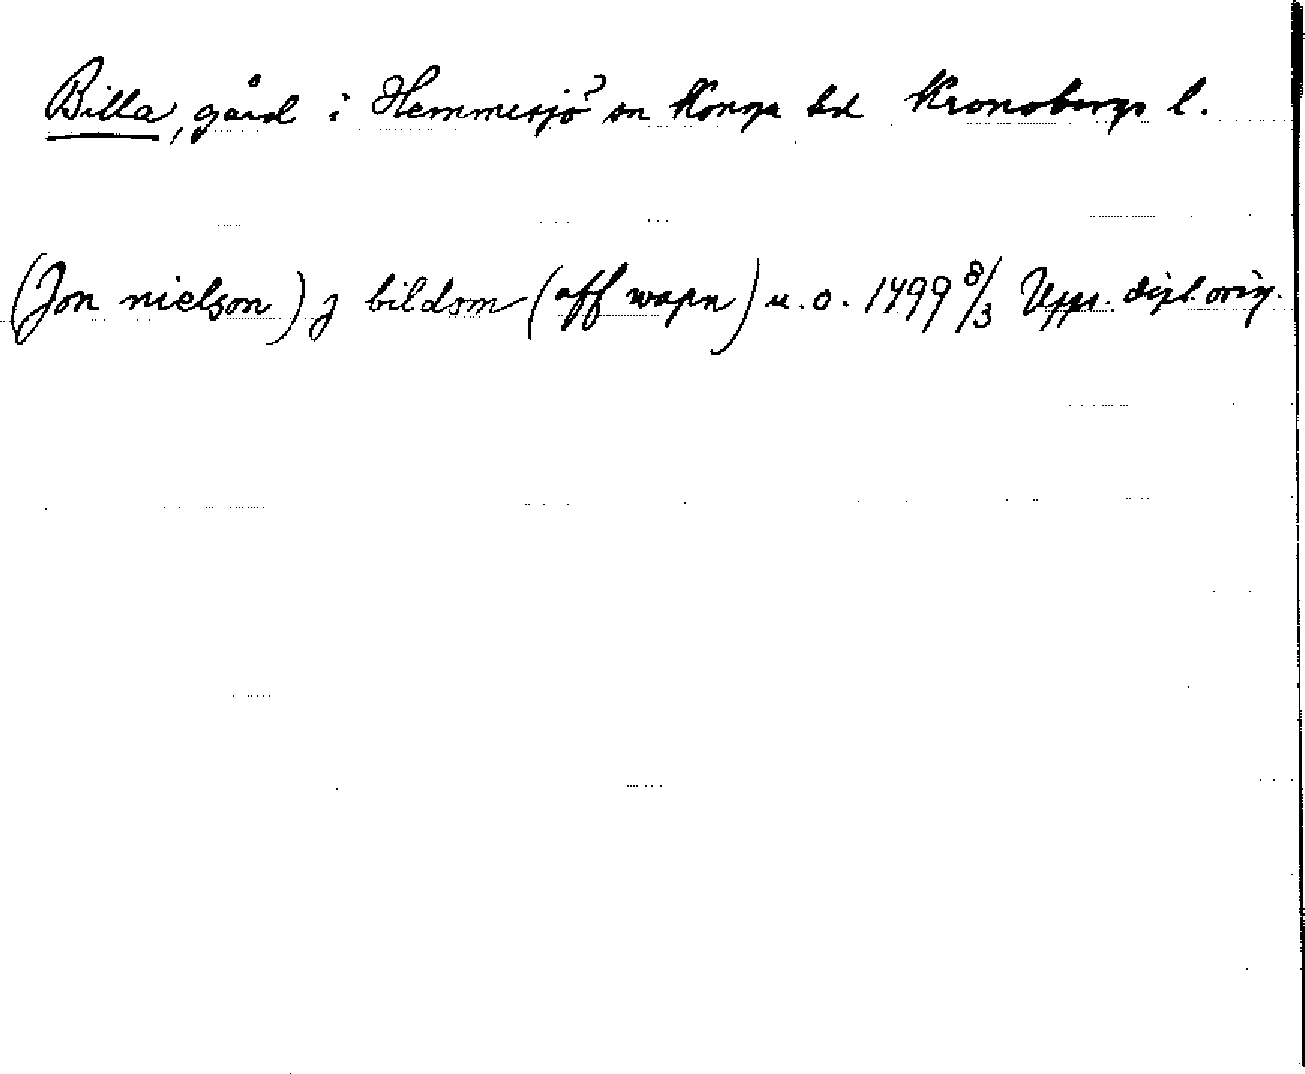 Billa, gård i Hemmesjö? sn Konga hd Kronobergs l.
(Jon nielson) j bildom (aff wapn) u. o. 1499 8/3 Upps. dipl. orig.